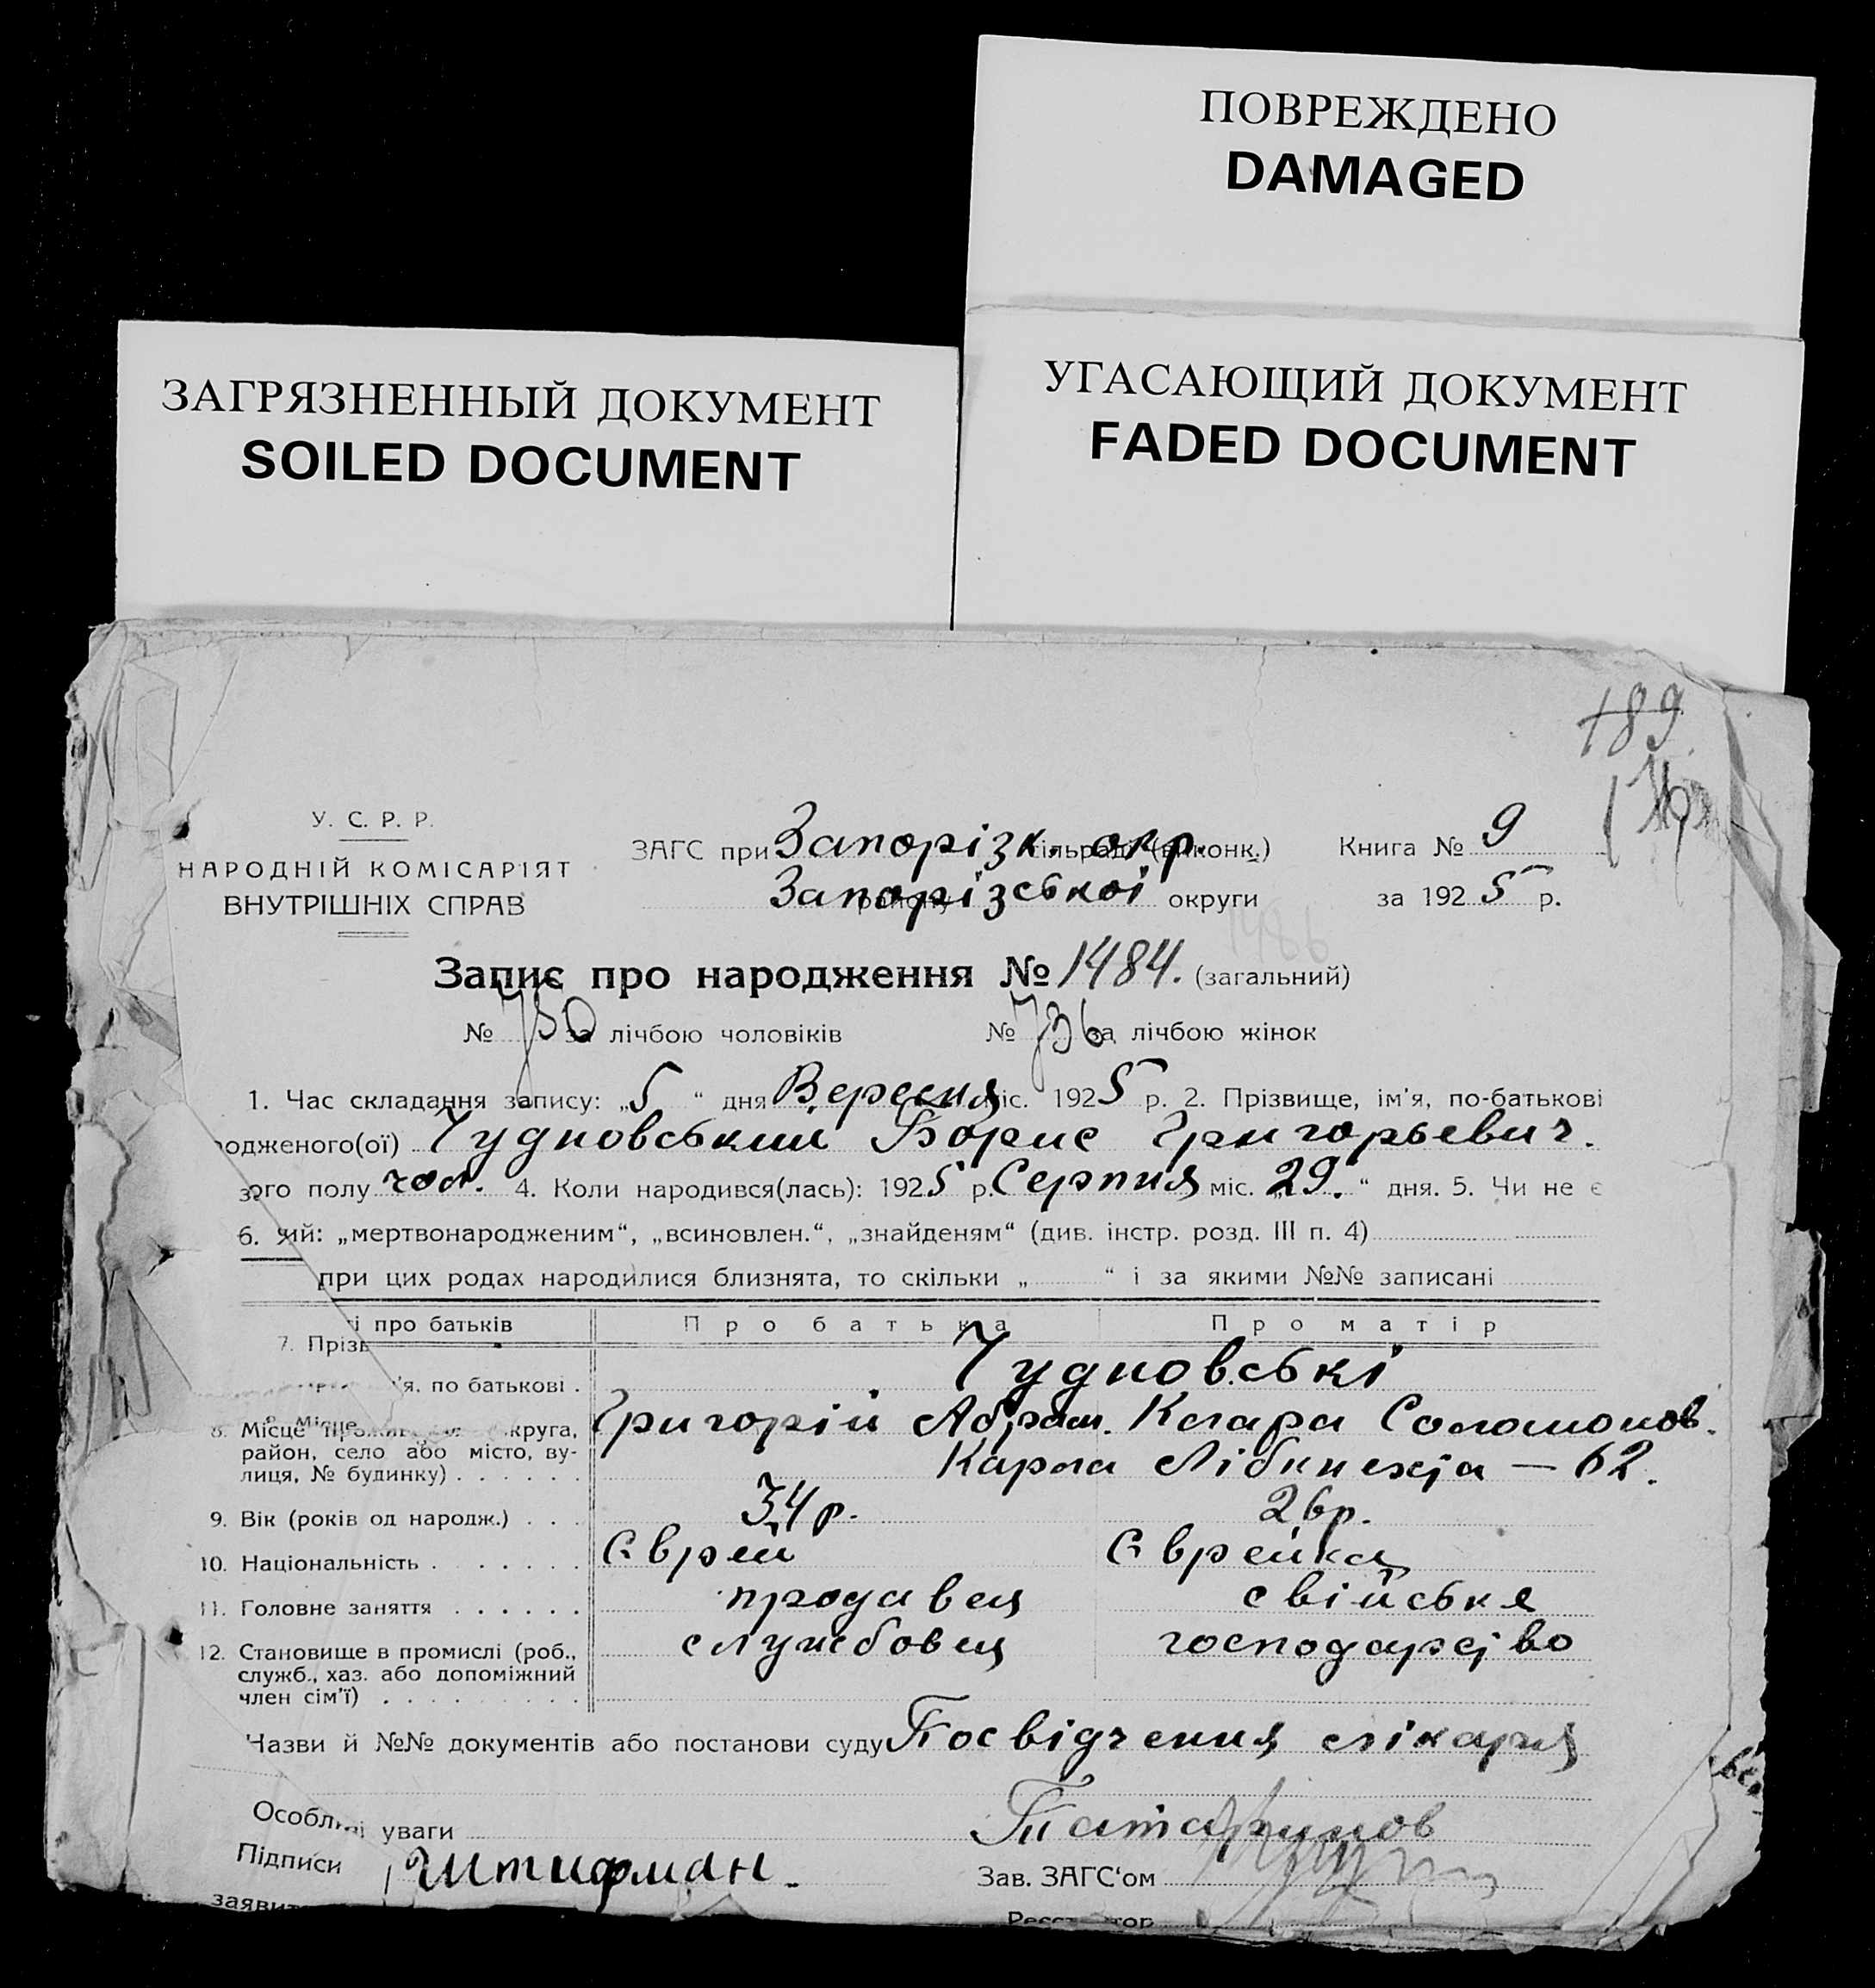 ПОВРЕЖДЕНО
DAMAGED
ЗАГРЯЗНЕННЫЙ ДОКУМЕНТ
SOILED DOCUMENT
УГАСАЮЩИЙ ДОКУМЕНТ
FADED DOCUMENT
189
У. С. Р. Р.
НАРОДНІЙ КОМІСАРІЯТ
ВНУТРІШНІХ СПРАВ
ЗАГС при Запорізк. окр. сільраді (виконк.) Книга № 9
Запорізської округи за 1925 р.
1486
Запис про народження № 1484. (загальний)
№ 750 за лічбою чоловіків № 736 за лічбою жінок
1. Час складання запису: „5“ дня Вересня міс. 1925 р. 2. Прізвище, ім'я, по-батькові
одженого(ої) Чудновський Борис Григорьевич.
ого полу чол. 4. Коли народився(лась): 1925 р. Серпня міс. „29.“ дня. 5. Чи не є
6. ий: „мертвонародженим“, „всиновлен.“, „знайденям“ (див. інстр. розд. III п. 4)
при цих родах народилися близнята, то скільки „ “ і за якими №№ записані
і про батьків Про батька Про матір
7. Прізв Чудновські
'я, по батькові . Григорій Абрам. Клара Соломонов.
8. Місце круга,
район, село або місто, ву- Карла Лібкнехта — 62.
лиця, № будинку) . . . . . .
9. Вік (років од народж.) . . . 34 р. 26 р.
10. Національність . . . . . . . Єврей Єврейка
11. Головне заняття . . . . . . продавец свійське
12. Становище в промислі (роб., службовец господарство
служб., хаз. або допоміжний
член сім'ї) . . . . . . . . .
Назви й №№ документів або постанови суду Посвідчення лікаря
Татаринов
Особл уваги
Підписи Штифман. Зав. ЗАГС'ом
заявит